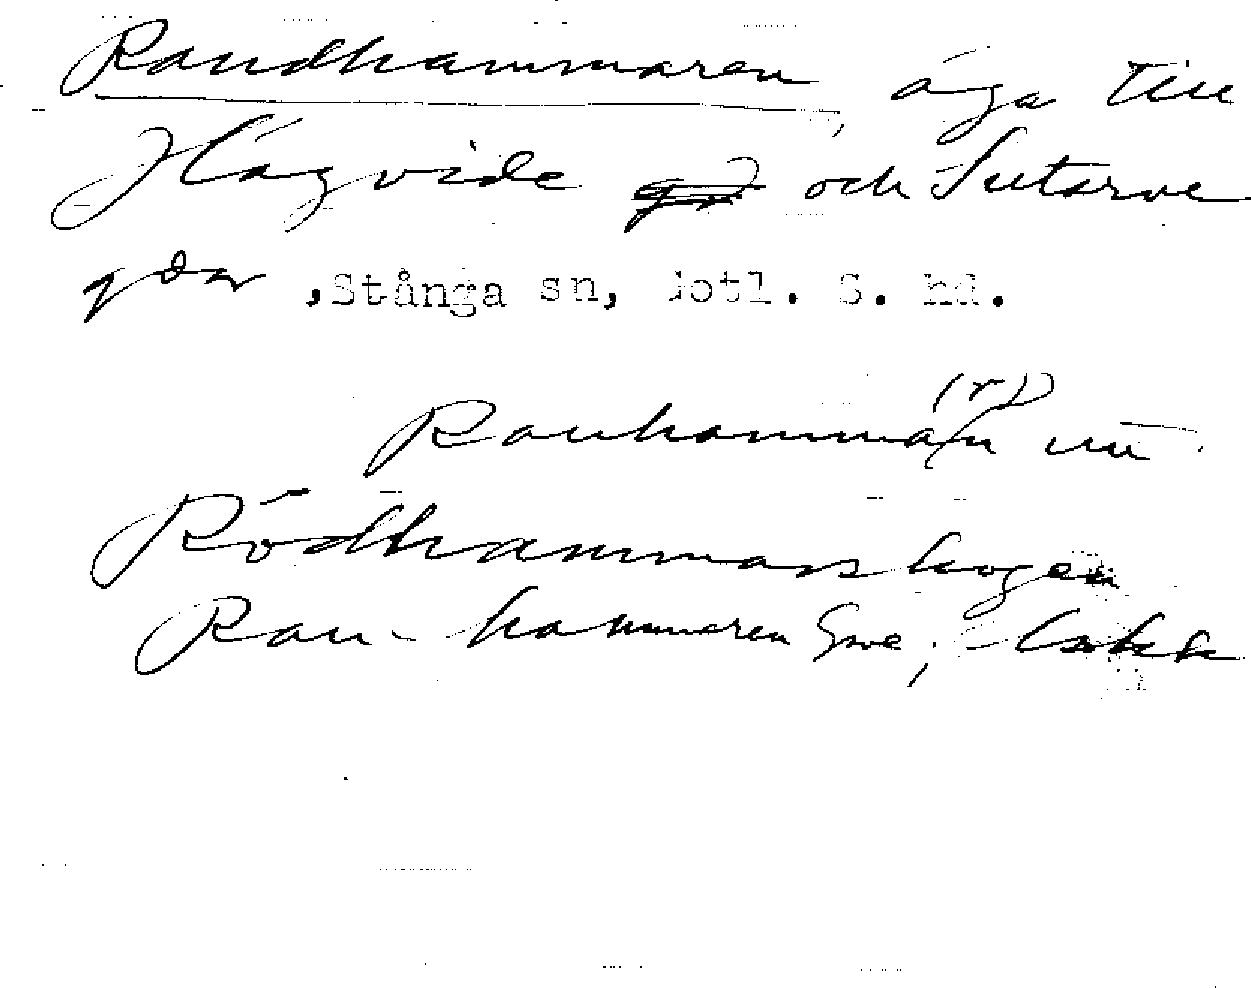 Raudhammaren, äga till
Hägvide och Sutarve
gdar, Stånga sn, Gotl. S. hd.
(r)
Rauhamman un.
Rödhammarskogen
Rau-hammaren Gwe;